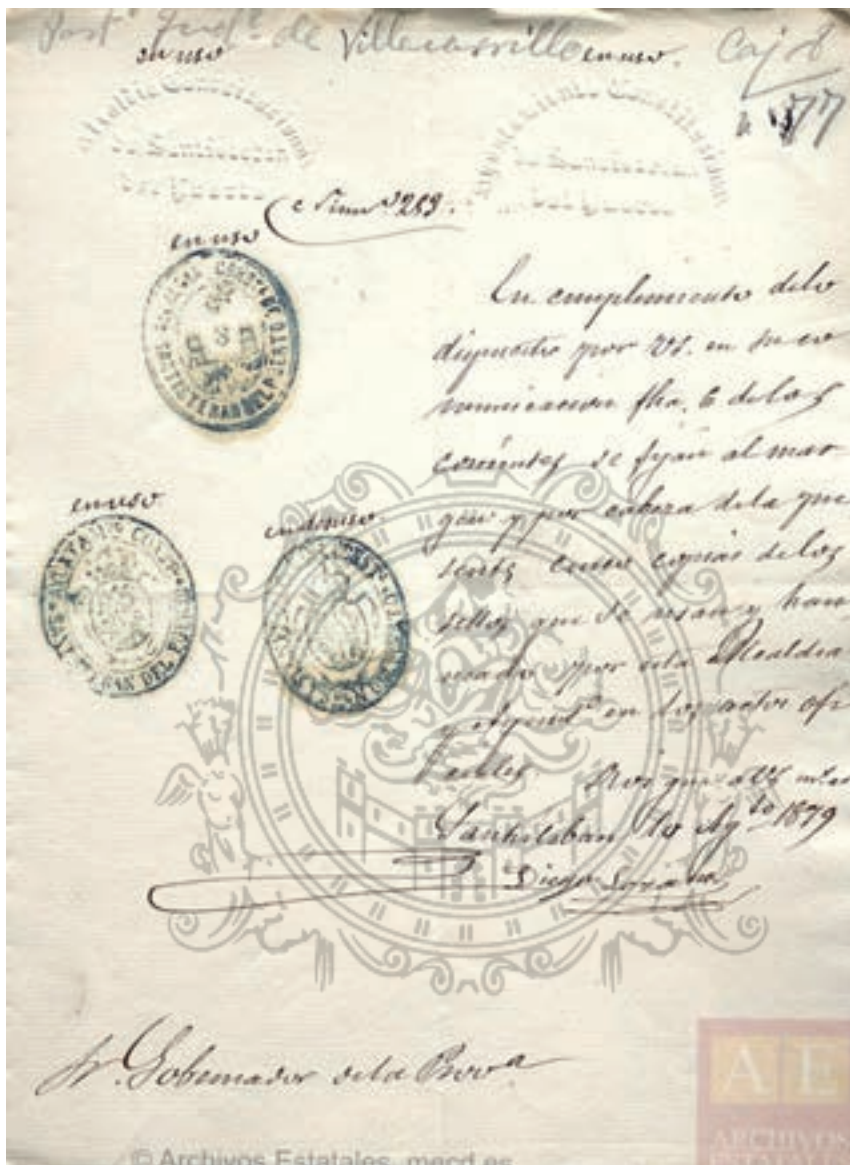 Part.º Jud.º de Villacarrillo Caj 8
en uso en uso.
177
Alcaldia Constitucional
de Santisteban
del Puerto
Ayuntamiento Constitucional
de Santisteban
del Puerto
Num.º 289.
en uso
SANTISTEBAN DEL PUERTO
En cumplimiento delo
dispuesto por VS. en su co
municacion fha. 6 delos
corrientes se fijan al mar
gen y por cabeza dela pre
sente cinco copias delos
sellos que se usan y han
usado por esta Alcaldia
y Ayunt.º en los actos ofi
ciales. Dios gue a VS m.s a.s
Santisteban 10 Ag.to 1879
Diego
en uso
en desuso
SANTISTEBAN DEL PUERTO
Sr. Gobernador dela Prov.a
AE
ARCHIVOS
ESTATALES
© Archivos Estatales, mecd.es